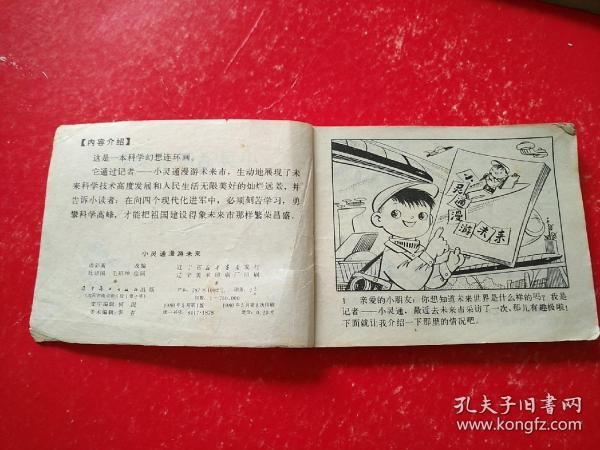 【内容介绍】
这是一本科学幻想连环画。
它通过记者——小灵通漫游未来市，生动地展现了未
来科学技术高度发展和人民生活无限美好的灿烂远景，并
告诉小读者：在向四个现代化进军中，必须刻苦学习，勇
攀科学高峰，才能把祖国建设得象未来市那样繁荣昌盛。
小灵通漫游未来
改编
绘画
出版
辽宁省新华书店发行
辽宁美术印刷厂印刷
1980年
定价：0.20元
灵通
漫
游
未来
1 亲爱的小朋友：你想知道未来世界是什么样的吗？我是
记者——小灵通，最近去未来市采访了一次，那儿有趣极啦！
下面就让我介绍一下那里的情况吧。
孔夫子旧书网
www.kongfz.com